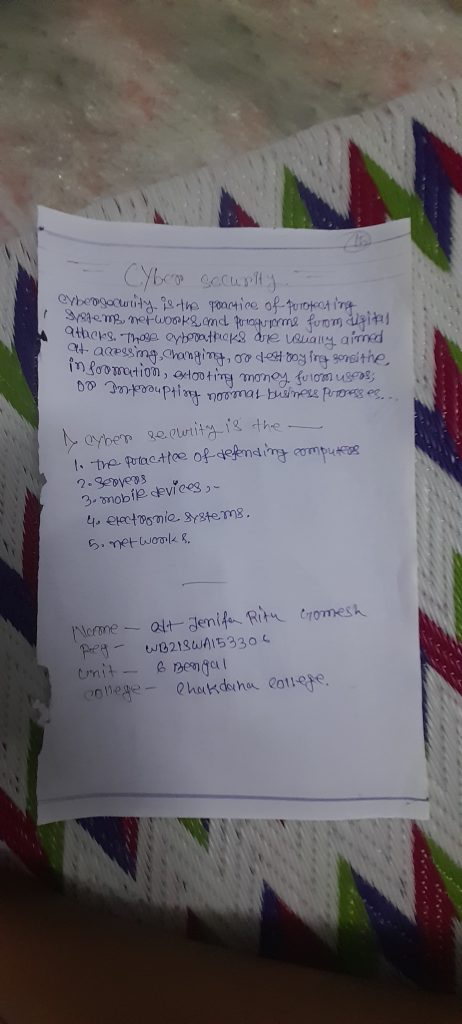 Cyber security
Cybersecurity is the practice of protecting
systems, networks, and programs from digital
attacks. These cyberattacks are usually aimed
at accessing, changing, or destroying sensitive
information, extorting money from users;
or Interrupting normal business processes...
cyber security is the —
1. the practice of defending computers
2. servers
3. mobile devices,-
4. electronic systems.
5. networks.
Name — cdt Jenifa Ritu Gomesh
Reg — WB21SWA153306
Unit — 6 Bengal
college — Chakdaha college.